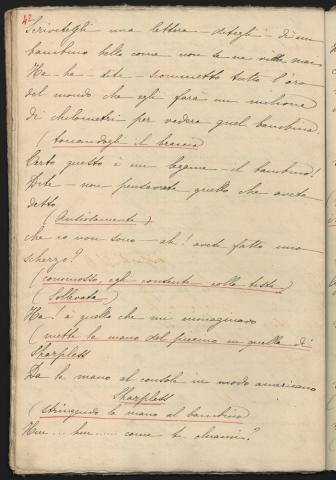 42
Scrivetegli una lettera – ditegli – di un
bambino bello come non se ne vide mai
Ha – ha – dite – scommetto tutto l'oro
del mondo che egli farà un milione
di chilometri per vedere quel bambino.
(toccandogli il braccio)
Certo questo è un legame – il bambino!
Dite – non pensavate quello che avete
detto
(Ansiosamente)
che io non sono – ah! avete fatto uno
scherzo?
(commosso, egli consente colla testa)
(Sollevata)
Ha! è quello che mi immaginavo
(mette la mano del piccino in quella di
Sharpless
Da la mano al console in modo americano
Sharpless
(stringendo la mano al bambino)
Hm... hm..... come ti chiami?